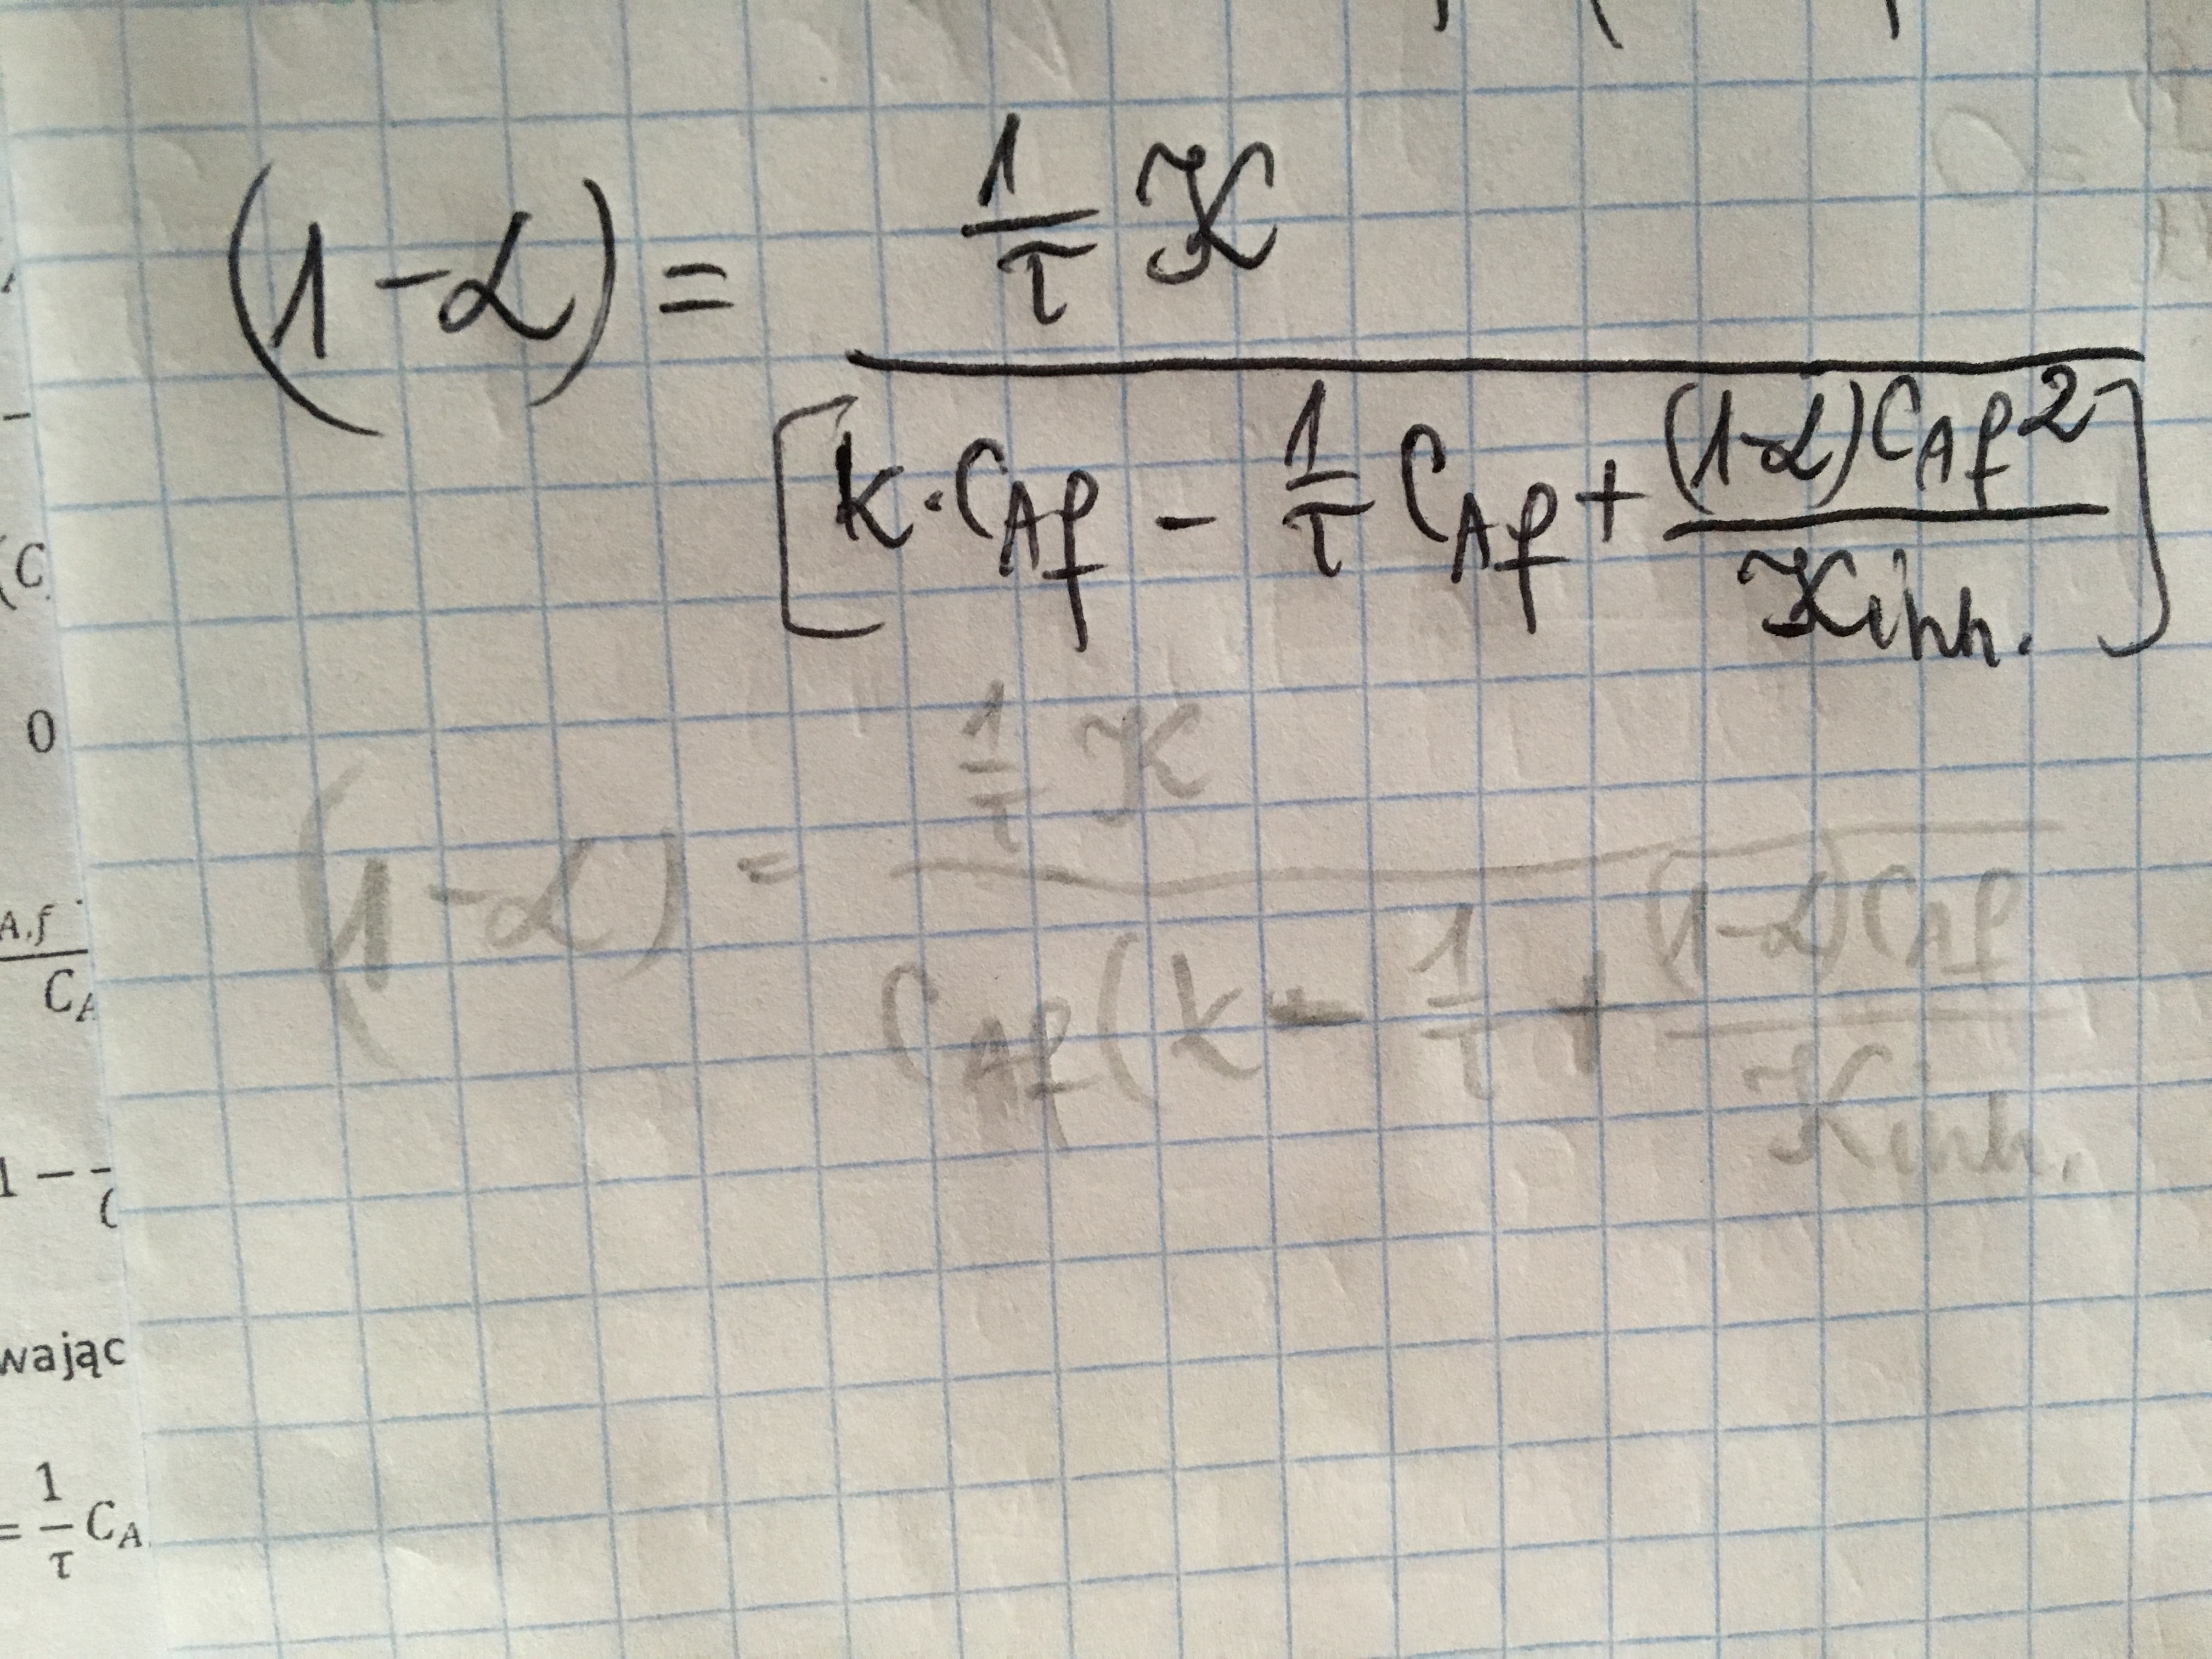 (1-α) = \frac{\frac{1}{τ} K}{[k·C_{Af} - \frac{1}{τ} C_{Af} + \frac{(1-α) C_{Af}^2}{K_{inh.}}]}
(1-α) = \frac{\frac{1}{τ} K}{C_{Af}(k - \frac{1}{τ} + \frac{(1-α) C_{Af}}{K_{inh.}}}
(C
0
A,f
C_A
1 -
wając
= \frac{1}{τ} C_A